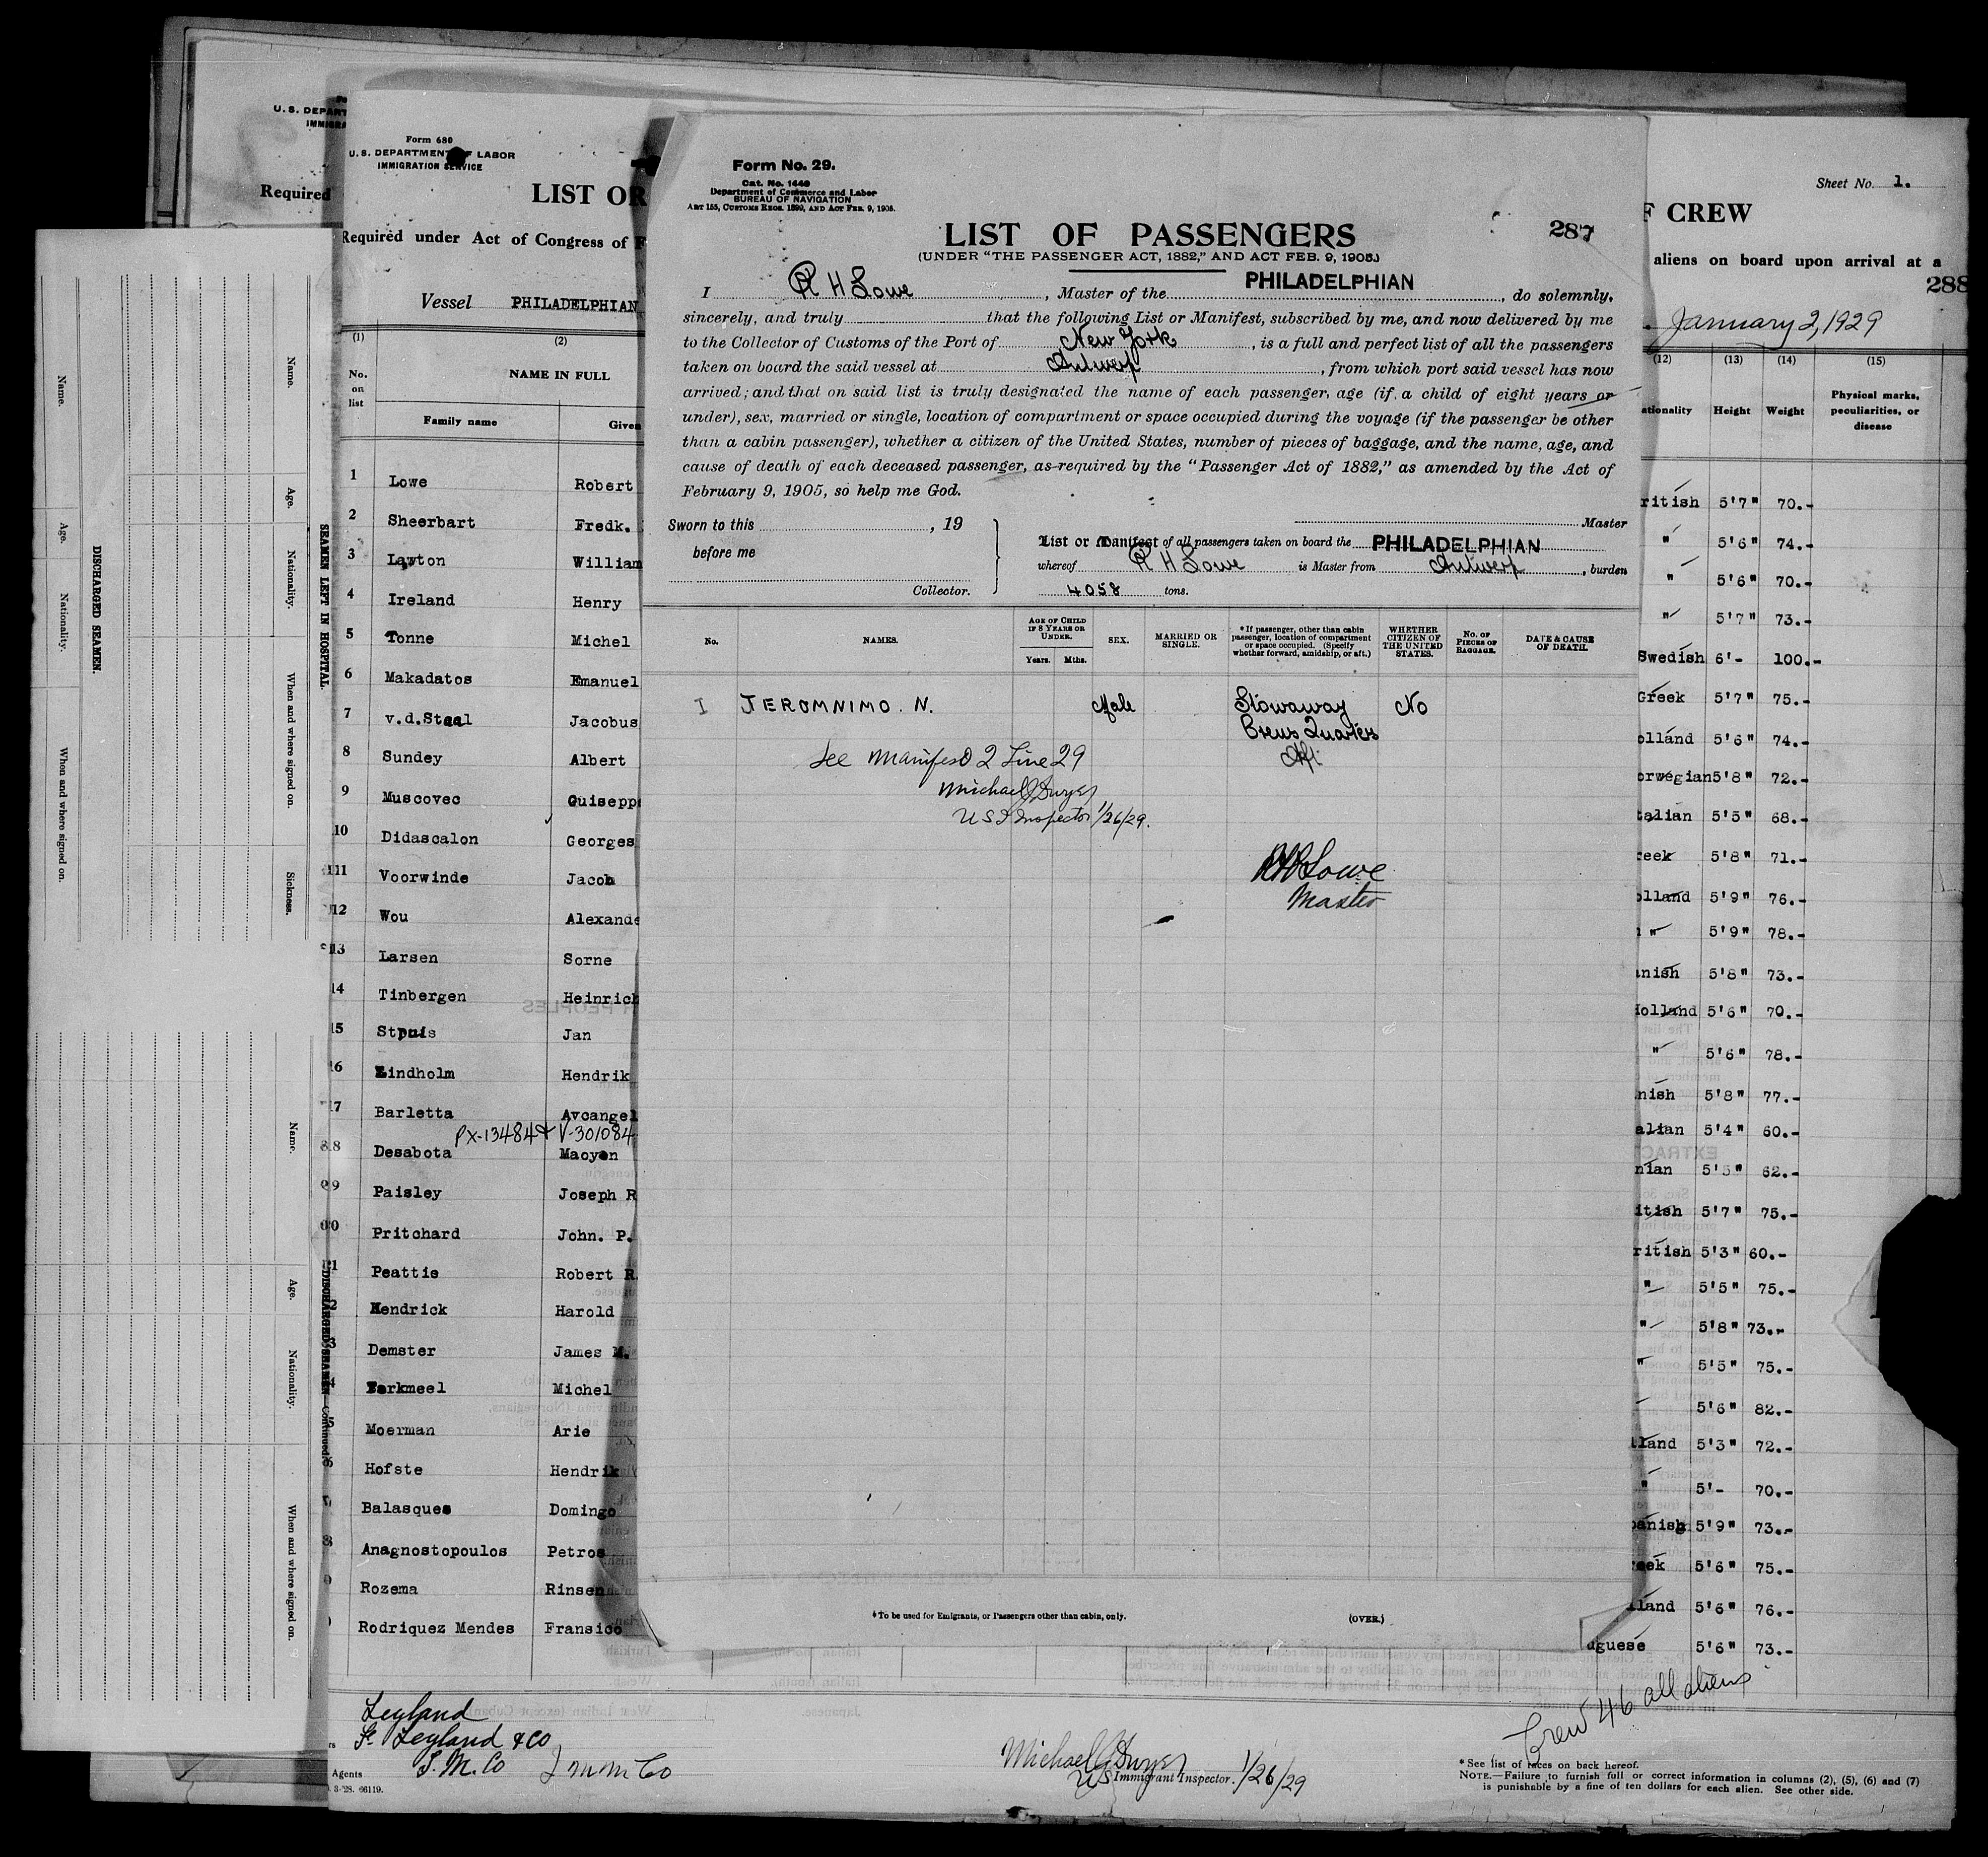 Form No. 29.
Cat. No. 1440
Department of Commerce and Labor
BUREAU OF NAVIGATION
ART 155, CUSTOMS REGS. 1899, AND ACT FEB. 9, 1905.
LIST OF PASSENGERS
287
(UNDER "THE PASSENGER ACT, 1882," AND ACT FEB. 9, 1905.)
I R H Lowe, Master of the PHILADELPHIAN, do solemnly,
sincerely, and truly that the following List or Manifest, subscribed by me, and now delivered by me
to the Collector of Customs of the Port of New York, is a full and perfect list of all the passengers
taken on board the said vessel at Antwerp, from which port said vessel has now
arrived; and that on said list is truly designated the name of each passenger, age (if, a child of eight years or
under), sex, married or single, location of compartment or space occupied during the voyage (if the passenger be other
than a cabin passenger), whether a citizen of the United States, number of pieces of baggage, and the name, age, and
cause of death of each deceased passenger, as required by the "Passenger Act of 1882," as amended by the Act of
February 9, 1905, so help me God.
Sworn to this , 19
before me
Collector.
Master
List or Manifest of all passengers taken on board the PHILADELPHIAN
whereof R H Lowe is Master from Antwerp, burden
4058 tons.
No. NAMES. AGE OF CHILD IF 8 YEARS OR UNDER. Years. Mths. SEX. MARRIED OR SINGLE. *If passenger, other than cabin passenger, location of compartment or space occupied. (Specify whether forward, amidship, or aft.) WHETHER CITIZEN OF THE UNITED STATES. NO. OF PIECES OF BAGGAGE. DATE & CAUSE OF DEATH.
1 JEROMNIMO. N. Male Stowaway No
Crews Quarters
Aft
See Manifest 2 Line 29
Michael J Dwyer
U S I Inspector 1/26/29.
R H Lowe
Master
*To be used for Emigrants, or Passengers other than cabin, only.
(OVER.)
U. S. DEPART
IMMIGRA
Required
Form 680
U. S. DEPARTMENT OF LABOR
IMMIGRATION SERVICE
LIST OR
Required under Act of Congress of F
Vessel PHILADELPHIAN
(1) (2)
No. on list
NAME IN FULL
Family name Given
1 Lowe Robert
2 Sheerbart Fredk.
3 Lawton William
4 Ireland Henry
5 Tonne Michel
6 Makadatos Emanuel
7 v.d.Staal Jacobus
8 Sundey Albert
9 Muscovec Guisepp
10 Didascalon Georges
11 Voorwinde Jacob
12 Wou Alexande
13 Larsen Sorne
14 Tinbergen Heinrich
15 Jan
16 Lindholm Hendrik
17 Barletta Avcangel
PX-134844 V-301084
18 Desabota Maoyen
19 Paisley Joseph R
20 Pritchard John. P.
21 Peattie Robert R.
Hendrick Harold
Demster James M.
Michel
Moerman Arie
Hofste Hendrik
Balasques Domingo
Anagnostopoulos Petros
Rozema Rinsen
Rodriquez Mendes Fransico
Leyland
F. Leyland & Co
I. M. Co I m m Co
Agents
3-28. 66119.
Michael J Dwyer
US Immigrant Inspector. 1/26/29
Crew 46 all aliens
*See list of races on back hereof.
NOTE.—Failure to furnish full or correct information in columns (2), (5), (6) and (7)
is punishable by a fine of ten dollars for each alien. See other side.
Sheet No. 1.
F CREW
aliens on board upon arrival at a
288
January 2, 1929
(12) (13) (14) (15)
ationality Height Weight Physical marks, peculiarities, or disease
ritish 5'7" 70.-
" 5'6" 74.-
" 5'6" 70.-
" 5'7" 73.-
Swedish 6'- 100.-
Greek 5'7" 75.-
olland 5'6" 74.-
orwegian 5'8" 72.-
talian 5'5" 68.-
reek 5'8" 71.-
olland 5'9" 76.-
" 5'9" 78.-
anish 5'8" 73.-
Holland 5'6" 70.-
" 5'6" 78.-
nish 5'8" 77.-
alian 5'4" 60.-
nian 5'5" 62.-
itish 5'7" 75.-
ritish 5'3" 60.-
" 5'5" 75.-
" 5'8" 73.-
" 5'5" 75.-
5'6" 82.-
lland 5'3" 72.-
" 5'- 70.-
panish 5'9" 73.-
eek 5'6" 75.-
lland 5'6" 76.-
uguese 5'6" 73.-
Name. Age. Nationality. When and where signed on.
DISCHARGED SEAMEN.
Name. Age. Nationality. When and where signed on. Sickness.
SEAMEN LEFT IN HOSPITAL.
Name. Age. Nationality. When and where signed on.
DISCHARGED SEAMEN—Continued